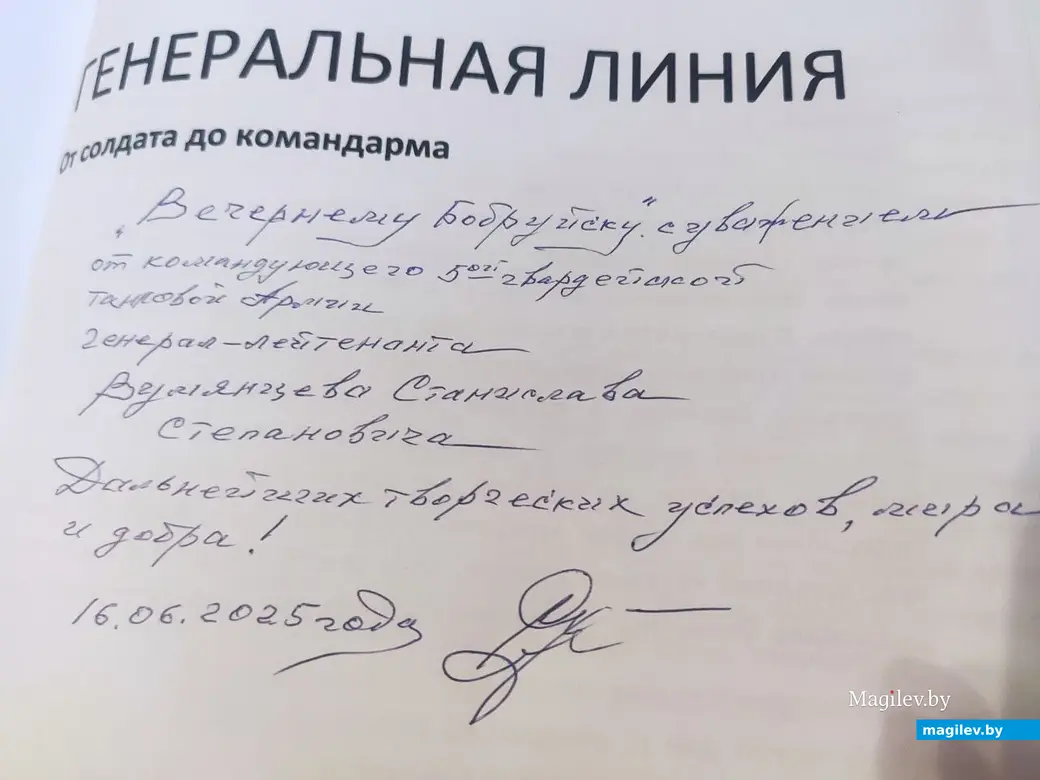 ГЕНЕРАЛЬНАЯ ЛИНИЯ
От солдата до командарма
„Вечернему Бобруйску“ с уважением
от командующего 5ой гвардейской
танковой Армии
генерал-лейтенанта
Румянцева Станислава
Степановича
Дальнейших творческих успехов, мира
и добра!
16.06.2025 года
Magilev.by
magilev.by